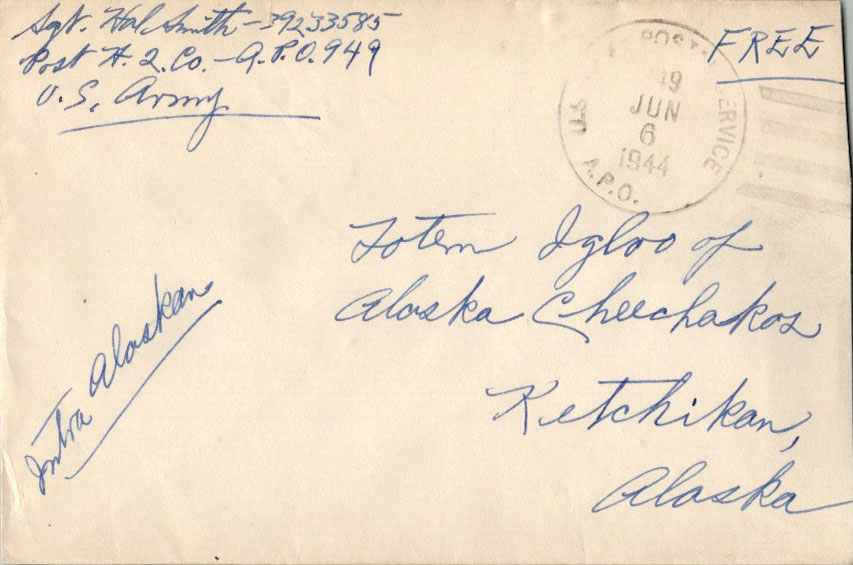 Sgt. Hal Smith - 39233585
Post H. Q. Co. - A.P.O. 949
U.S. Army
FREE
U.S. POSTAL SERVICE
19
JUN
6
1944
A.P.O.
Totem Igloo of
Alaska Cheechakos
Ketchikan,
Alaska
Intra Alaskan